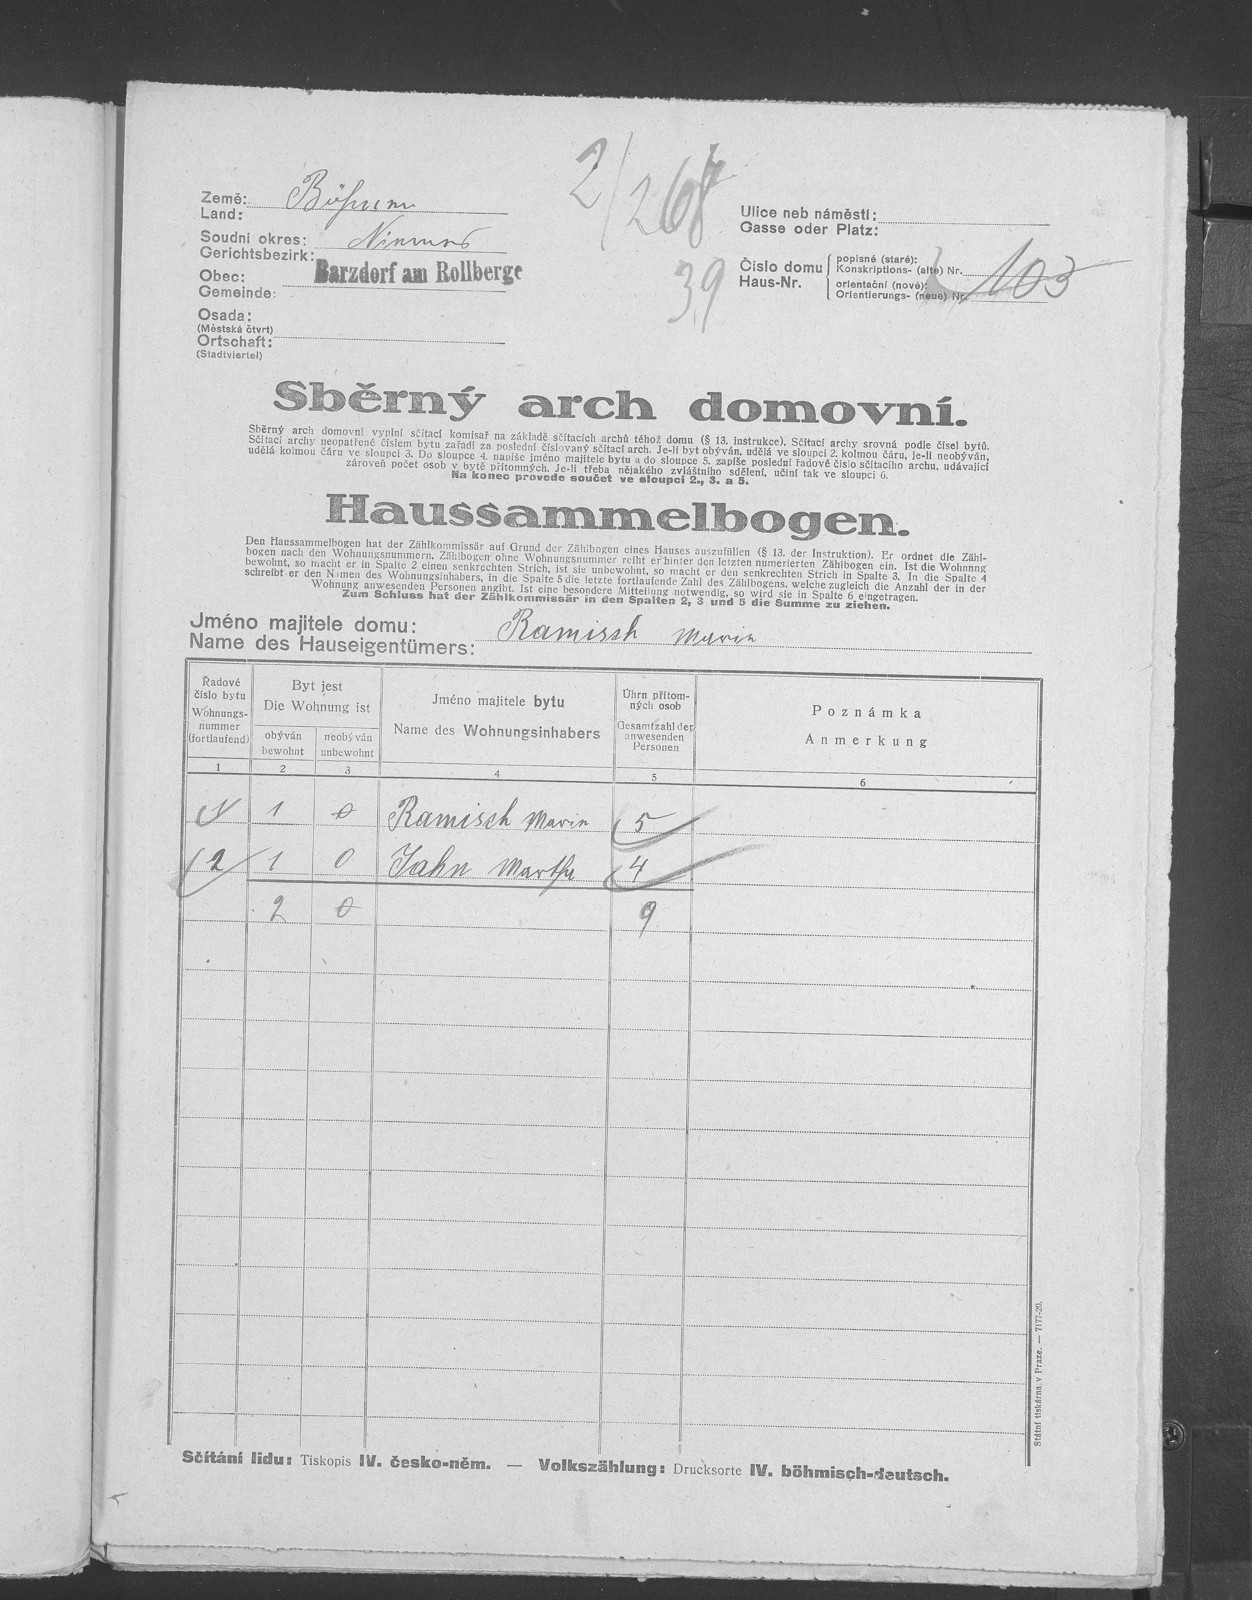 2/268
39
Země: Böhmen
Land:
Soudní okres: Niemes
Gerichtsbezirk:
Obec: Barzdorf am Rollberge
Gemeinde:
Osada:
(Městská čtvrt)
Ortschaft:
(Stadtviertel)
Ulice neb náměstí:
Gasse oder Platz:
Číslo domu
Haus-Nr.
popisné (staré):
Konskriptions- (alte) Nr. 103
orientační (nové):
Orientierungs- (neue) Nr.
Sběrný arch domovní.
Sběrný arch domovní vyplní sčítací komisař na základě sčítacích archů téhož domu (§ 13. instrukce). Sčítací archy srovná podle čísel bytů.
Sčítací archy neopatřené číslem bytu zařadí za poslední číslovaný sčítací arch. Je-li byt obýván, udělá ve sloupci 2. kolmou čáru, je-li neobýván,
udělá kolmou čáru ve sloupci 3. Do sloupce 4. napíše jméno majitele bytu a do sloupce 5. zapíše poslední řadové číslo sčítacího archu, udávající
zároveň počet osob v bytě přítomných. Je-li třeba nějakého zvláštního sdělení, učiní tak ve sloupci 6.
Na konec provede součet ve sloupci 2., 3. a 5.
Haussammelbogen.
Den Haussammelbogen hat der Zählkommissär auf Grund der Zählbogen eines Hauses auszufüllen (§ 13. der Instruktion). Er ordnet die Zähl-
bogen nach den Wohnungsnummern. Zählbogen ohne Wohnungsnummer reiht er hinter den letzten numerierten Zählbogen ein. Ist die Wohnnng
bewohnt, so macht er in Spalte 2 einen senkrechten Strich, ist sie unbewohnt, so macht er den senkrechten Strich in Spalte 3. In die Spalte 4
schreibt er den Namen des Wohnungsinhabers, in die Spalte 5 die letzte fortlaufende Zahl des Zählbogens, welche zugleich die Anzahl der in der
Wohnung anwesenden Personen angibt. Ist eine besondere Mitteilung notwendig, so wird sie in Spalte 6 eingetragen.
Zum Schluss hat der Zählkommissär in den Spalten 2, 3 und 5 die Summe zu ziehen.
Jméno majitele domu: Ramisch Marie
Name des Hauseigentümers:
Řadové číslo bytu
Wohnungs-nummer (fortlaufend)
Byt jest
Die Wohnung ist
obýván
bewohnt
neobýván
unbewohnt
Jméno majitele bytu
Name des Wohnungsinhabers
Úhrn přítom-ných osob
Gesamtzahl der anwesenden Personen
Poznámka
Anmerkung
1 2 3 4 5 6
1 1 0 Ramisch Marie 5
2 1 0 Jahn Martha 4
2 0 9
Sčítání lidu: Tiskopis IV. česko-něm. — Volkszählung: Drucksorte IV. böhmisch-deutsch.
Státní tiskárna v Praze. — 7177-20.